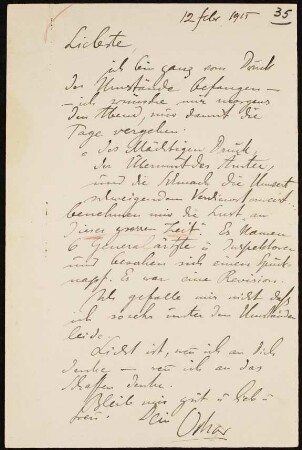 12 febr 1915
35
Liebste,
ich bin ganz vom Druck
der Umstände befangen –
– ich wünsche mir morgens
den Abend, nur damit die
Tage vergehen.
des Mächtigen Druck,
der Übermut der Ämter,
und die Schmach die Unwert
schweigendem Verdienst
benehmen mir die Lust an
dieser Zeit. Es kamen
6 Generalärzte u Inspektoren
und besahen sich einen Spuck-
napf. Es war eine Revision.
Ich gefalle mir nicht daß
ich so sehr unter den Umständen
leide.
Licht ist, wenn ich an Dich
denke – wenn ich an das
Schaffen denke.
Bleib mir gut u lieb u
treu. Dein
Oskar